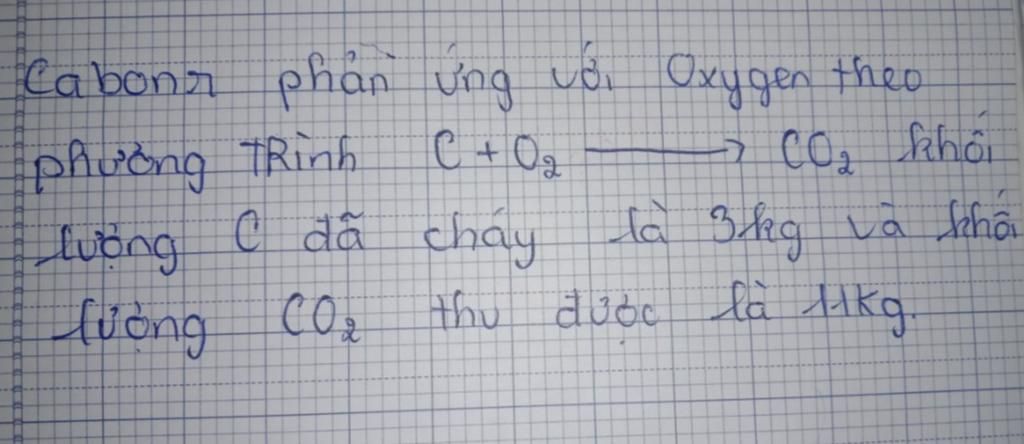 Cabonn phản ứng với Oxygen theo
phương trình C + O₂ ⟶ CO₂ khối
lượng C dã cháy là 3kg và khối
lượng CO₂ thu được là 11kg.